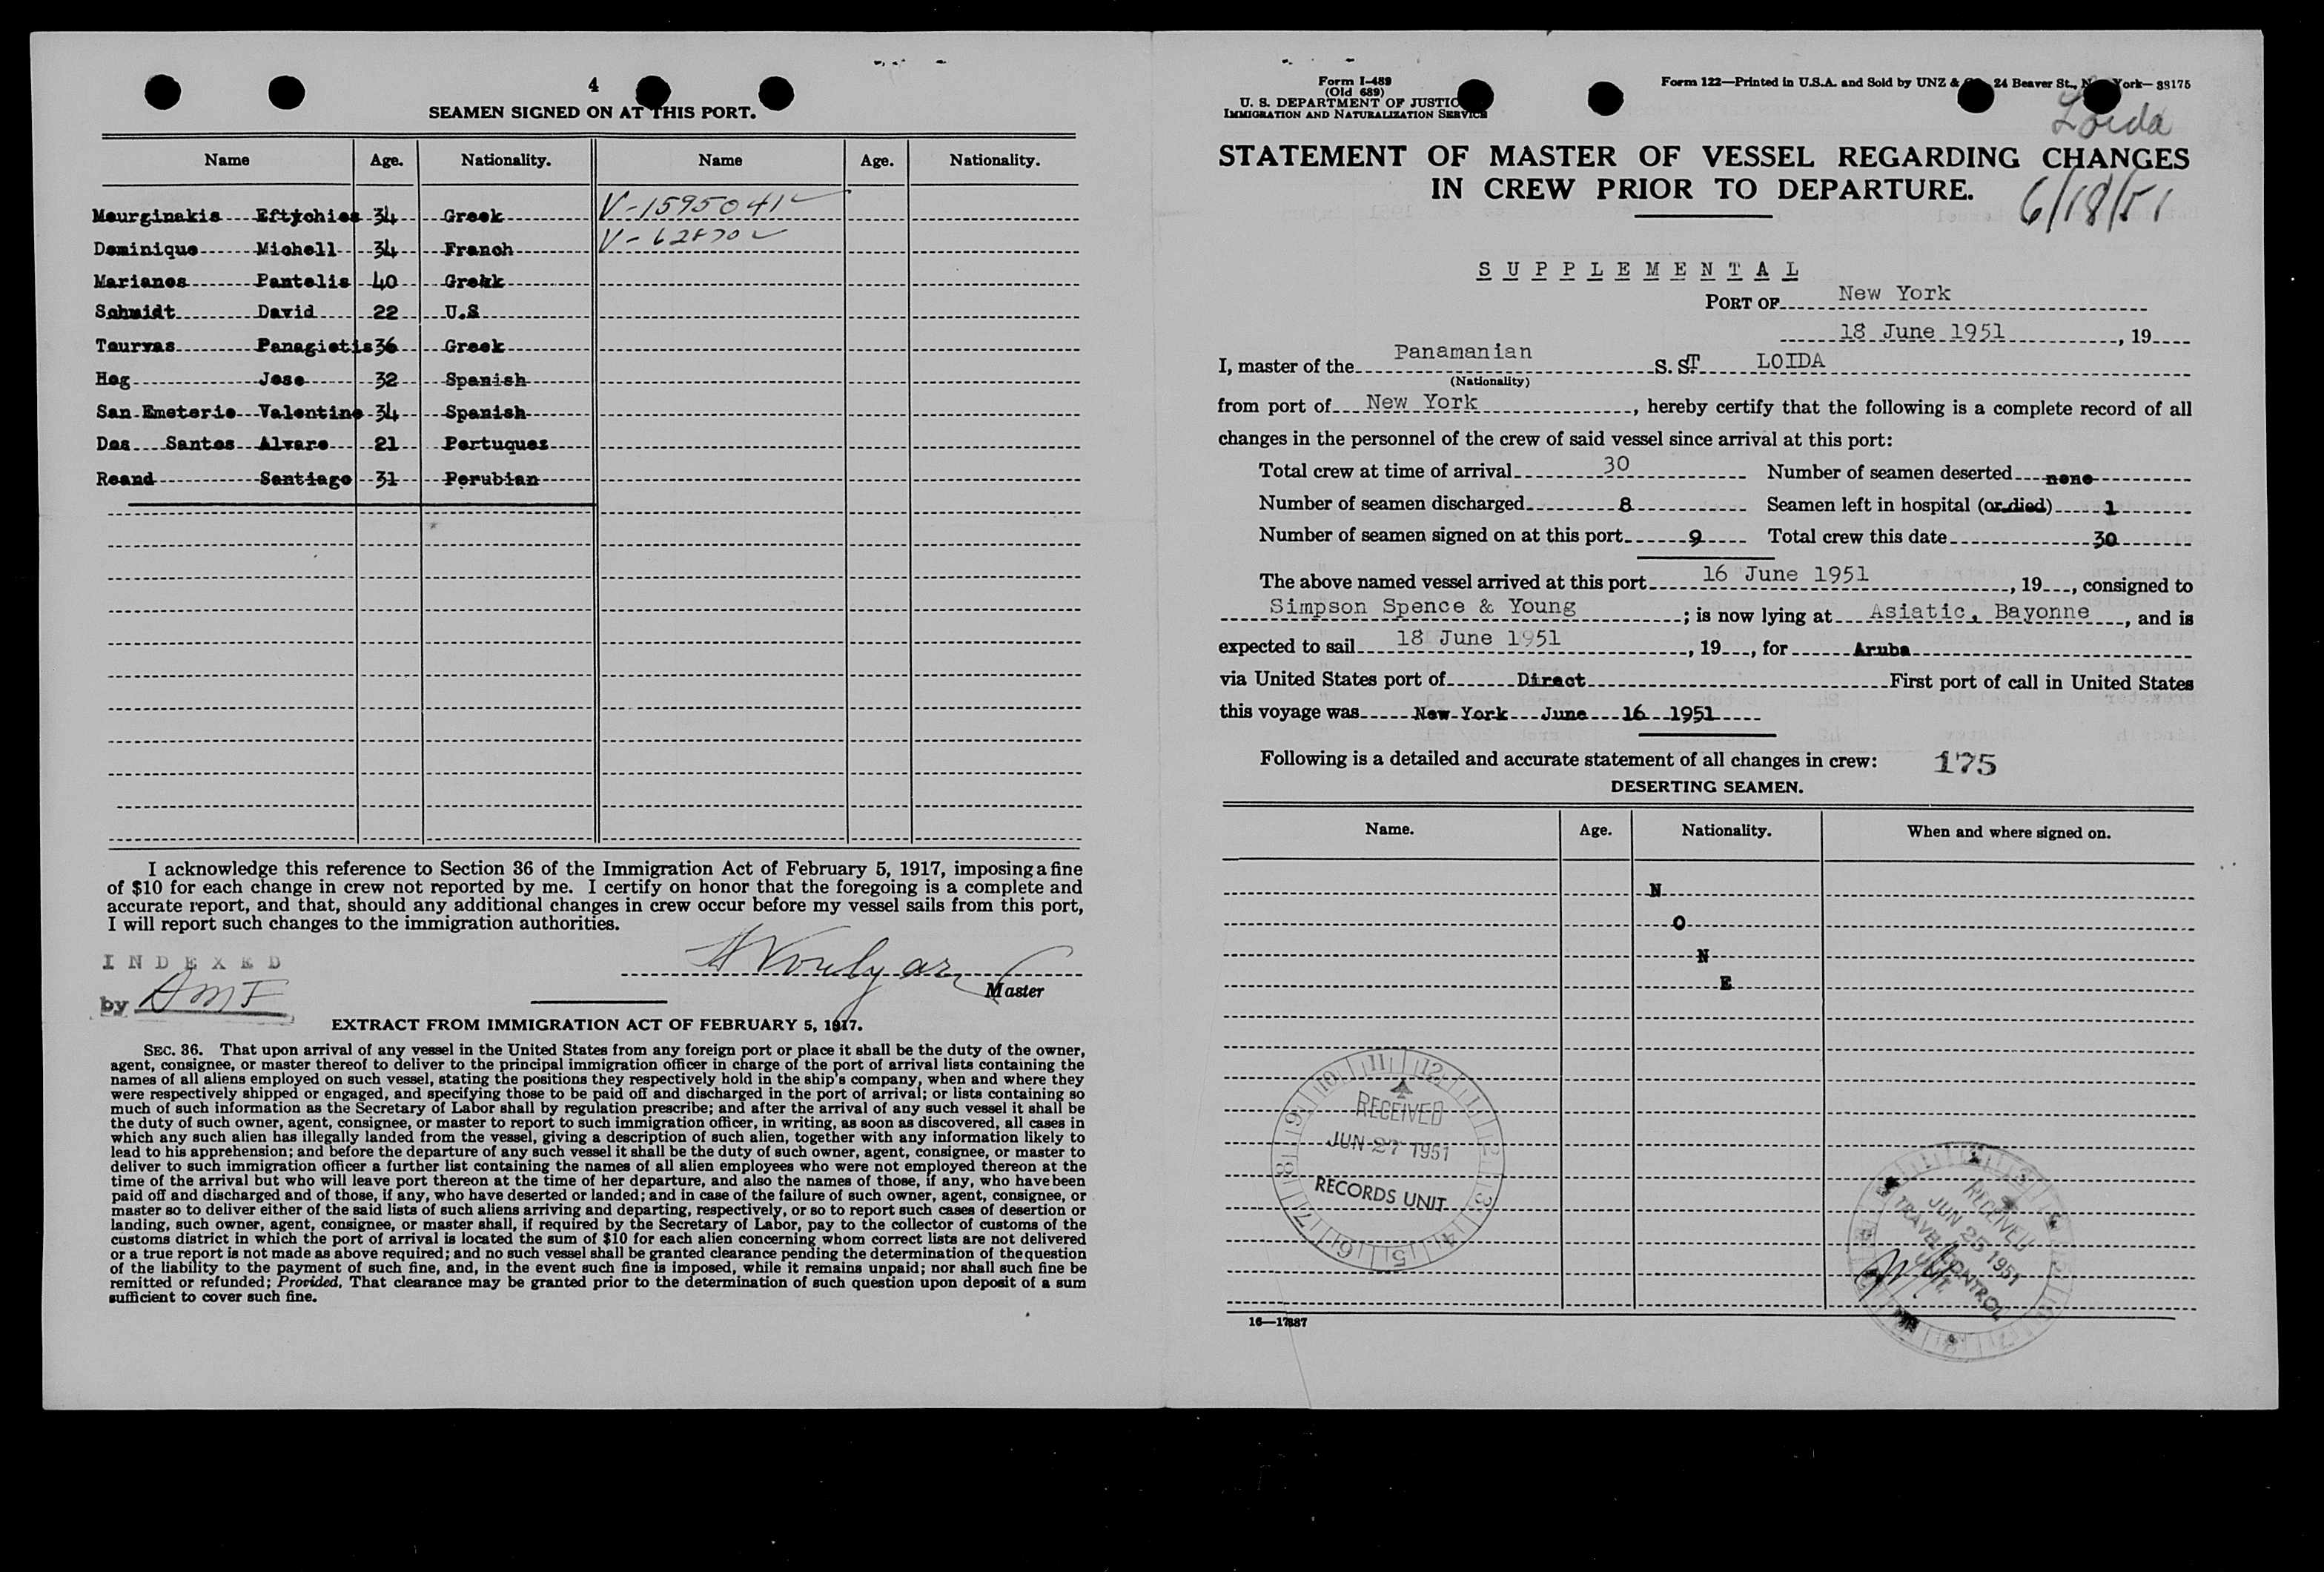 4
SEAMEN SIGNED ON AT THIS PORT.
Name Age. Nationality. Name Age. Nationality.
Mourginakis Eftychios 34 Greek V-1595041
Dominique Michell 34 Franch
Marianos Pantelis 40 Grekk
Schmidt David 22 U.S
Tourvas Panagiotis 36 Greek
Hog Jose 32 Spanish
San Emeterio Valentino 34 Spanish
Dos Santos Alvaro 21 Portuquez
Roand Santiago 31 Perubian
I acknowledge this reference to Section 36 of the Immigration Act of February 5, 1917, imposing a fine
of $10 for each change in crew not reported by me. I certify on honor that the foregoing is a complete and
accurate report, and that, should any additional changes in crew occur before my vessel sails from this port,
I will report such changes to the immigration authorities.
INDEXED
by AMF
Master
EXTRACT FROM IMMIGRATION ACT OF FEBRUARY 5, 1917.
SEC. 36. That upon arrival of any vessel in the United States from any foreign port or place it shall be the duty of the owner,
agent, consignee, or master thereof to deliver to the principal immigration officer in charge of the port of arrival lists containing the
names of all aliens employed on such vessel, stating the positions they respectively hold in the ship's company, when and where they
were respectively shipped or engaged, and specifying those to be paid off and discharged in the port of arrival; or lists containing so
much of such information as the Secretary of Labor shall by regulation prescribe; and after the arrival of any such vessel it shall be
the duty of such owner, agent, consignee, or master to report to such immigration officer, in writing, as soon as discovered, all cases in
which any such alien has illegally landed from the vessel, giving a description of such alien, together with any information likely to
lead to his apprehension; and before the departure of any such vessel it shall be the duty of such owner, agent, consignee, or master to
deliver to such immigration officer a further list containing the names of all alien employees who were not employed thereon at the
time of the arrival but who will leave port thereon at the time of her departure, and also the names of those, if any, who have been
paid off and discharged and of those, if any, who have deserted or landed; and in case of the failure of such owner, agent, consignee, or
master so to deliver either of the said lists of such aliens arriving and departing, respectively, or so to report such cases of desertion or
landing, such owner, agent, consignee, or master shall, if required by the Secretary of Labor, pay to the collector of customs of the
customs district in which the port of arrival is located the sum of $10 for each alien concerning whom correct lists are not delivered
or a true report is not made as above required; and no such vessel shall be granted clearance pending the determination of the question
of the liability to the payment of such fine, and, in the event such fine is imposed, while it remains unpaid; nor shall such fine be
remitted or refunded; Provided, That clearance may be granted prior to the determination of such question upon deposit of a sum
sufficient to cover such fine.
Form I-489
(Old 689)
U. S. DEPARTMENT OF JUSTICE
IMMIGRATION AND NATURALIZATION SERVICE
Form 122—Printed in U.S.A. and Sold by UNZ & 24 Beaver St., New York— 38175
Loida
STATEMENT OF MASTER OF VESSEL REGARDING CHANGES
IN CREW PRIOR TO DEPARTURE.
6/18/51
SUPPLEMENTAL
PORT OF New York
18 June 1951, 19
I, master of the Panamanian S. ST. LOIDA
(Nationality)
from port of New York, hereby certify that the following is a complete record of all
changes in the personnel of the crew of said vessel since arrival at this port:
Total crew at time of arrival 30 Number of seamen deserted none
Number of seamen discharged 8 Seamen left in hospital (or died) 1
Number of seamen signed on at this port 9 Total crew this date 30
The above named vessel arrived at this port 16 June 1951, 19, consigned to
Simpson Spence & Young; is now lying at Asiatic, Bayonne, and is
expected to sail 18 June 1951, 19, for Aruba
via United States port of Direct First port of call in United States
this voyage was New York June 16 1951
Following is a detailed and accurate statement of all changes in crew: 175
DESERTING SEAMEN.
Name. Age. Nationality. When and where signed on.
N
O
N
E
RECEIVED
JUN 27 1951
RECORDS UNIT
RECEIVED
JUN 25 1951
TRAVEL CONTROL
UNIT
16—17887